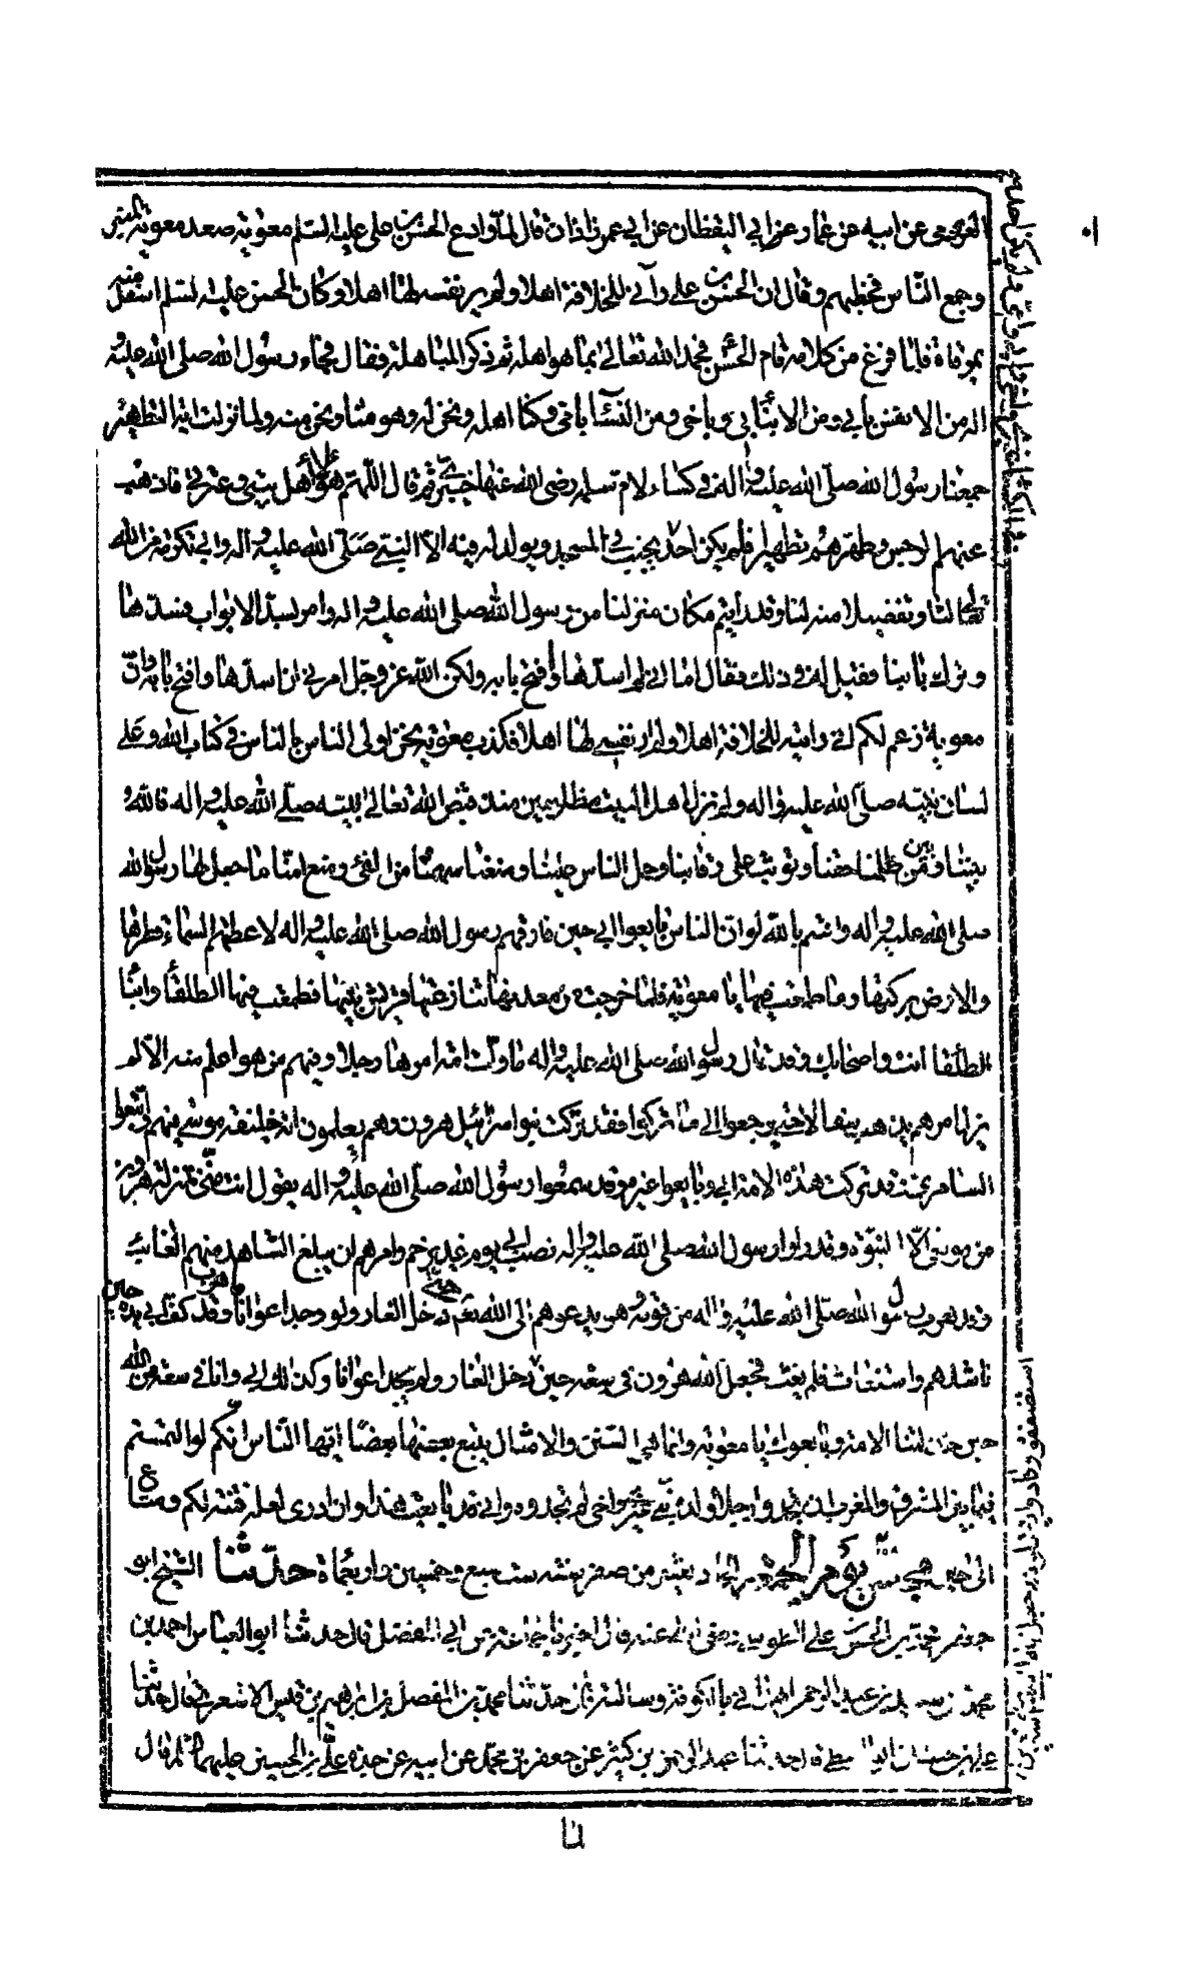 عن ابيه عن عمار عن ابي اليقظان عن ابي عمر زاذان قال لما وادع الحسن بن علي عليه السلم معوية صعد معوية المنبر
وجمع الناس فخطبهم وقال ان الحسن بن علي رآني للخلافة اهلا ولم ير نفسه لها اهلا وكان الحسن عليه السلم اسفل منه
بمرقاة فلما فرغ من كلامه قام الحسن فحمد الله تعالى بما هو اهله ثم ذكر المباهلة فقال فجاء رسول الله صلى الله عليه و
اله من الانفس بابي ومن الابناء بي وباخي ومن النساء بامي وكنا اهله ونحن له وهو منا ونحن منه ولما نزلت اية التطهير
جمعنا رسول الله صلى الله عليه واله في كساء لام سلمة رضي الله عنها خيبري ثم قال اللهم هؤلاء اهل بيتي وعترتي فاذهب
عنهم الرجس وطهرهم تطهيرا فلم يكن احد يجنب في المسجد ويولد له فيه الا النبي صلى الله عليه واله وابي تكرمة من الله
تعالى لنا وتفضيلا منه لنا وقد رايتم مكان منزلنا من رسول الله صلى الله عليه واله وامر بسد الابواب فسدها
وترك بابنا فقيل له في ذلك فقال اما اني لم اسدها وافتح بابه ولكن الله عز وجل امرني ان اسدها وافتح بابه وان
معوية زعم لكم اني رايته للخلافة اهلا ولم ار نفسي لها اهلا فكذب معوية نحن اولى الناس بالناس في كتاب الله وعلى
لسان نبيه صلى الله عليه واله ولم نزل اهل البيت مظلومين منذ قبض الله تعالى نبيه صلى الله عليه واله فالله
بيننا وبين من ظلمنا حقنا وتوثب على رقابنا وحمل الناس علينا ومنعنا سهمنا من الفئ ومنع امنا ما جعل لها رسول الله
صلى الله عليه واله واقسم بالله لو ان الناس بايعوا ابي حين فارقهم رسول الله صلى الله عليه واله لاعطتهم السماء قطرها
والارض بركتها وما طمعت فيها يا معوية فلما خرجت من معدنها تنازعتها قريش بينها فطمعت فيها الطلقاء وابناء
الطلقاء انت واصحابك وقد قال رسول الله صلى الله عليه واله ما ولت امة امرها رجلا وفيهم من هو اعلم منه الا لم
يزل امرهم يذهب سفالا حتى يرجعوا الى ما تركوا فقد تركت بنو اسرائيل هرون وهم يعلمون انه خليفة موسى فيهم واتبعوا
السامري وقد تركت هذه الامة ابي وبايعوا غيره وقد سمعوا رسول الله صلى الله عليه واله يقول انت مني بمنزلة هرون
من موسى الا النبوة وقد راوا رسول الله صلى الله عليه واله نصب ابي يوم غدير خم وامرهم ان يبلغ الشاهد منهم الغائب
وقد هرب رسول الله صلى الله عليه واله من قومه وهو يدعوهم الى الله تعالى حتى دخل الغار ولو وجد اعوانا ما هرب وقد كف ابي يده حين
ناشدهم واستغاث فلم يغث فجعل الله هرون في سعة حين دخل الغار ولم يجد اعوانا وكذلك ابي وانا في سعة من الله
حين خذلتنا الامة وبايعوك يا معوية وانما هي السنن والامثال يتبع بعضها بعضا ايها الناس انكم لو التمستم
فيما بين المشرق والمغرب ان تجدوا رجلا ولده نبي غيري واخي لم تجدوه واني قد بايعت هذا وان ادري لعله فتنة لكم ومتاع
الى حين مجلس يوم الجمعة من صفر سنة سبع وخمسين واربعماة حدثنا الشيخ ابو
جعفر محمد بن الحسن بن علي الطوسي رضي الله عنه قال اخبرنا جماعة عن ابي المفضل قال حدثنا ابو العباس احمد بن
محمد بن سعيد بن عبد الرحمن الهمداني بالكوفة وسالته قال حدثنا محمد بن المفضل بن ابراهيم بن قيس الاشعري قال حدثنا
علي بن حسان الواسطي قال حدثنا عبد الرحمن بن كثير عن جعفر بن محمد عن ابيه عن جده علي بن الحسين عليهم السلم قال
لما